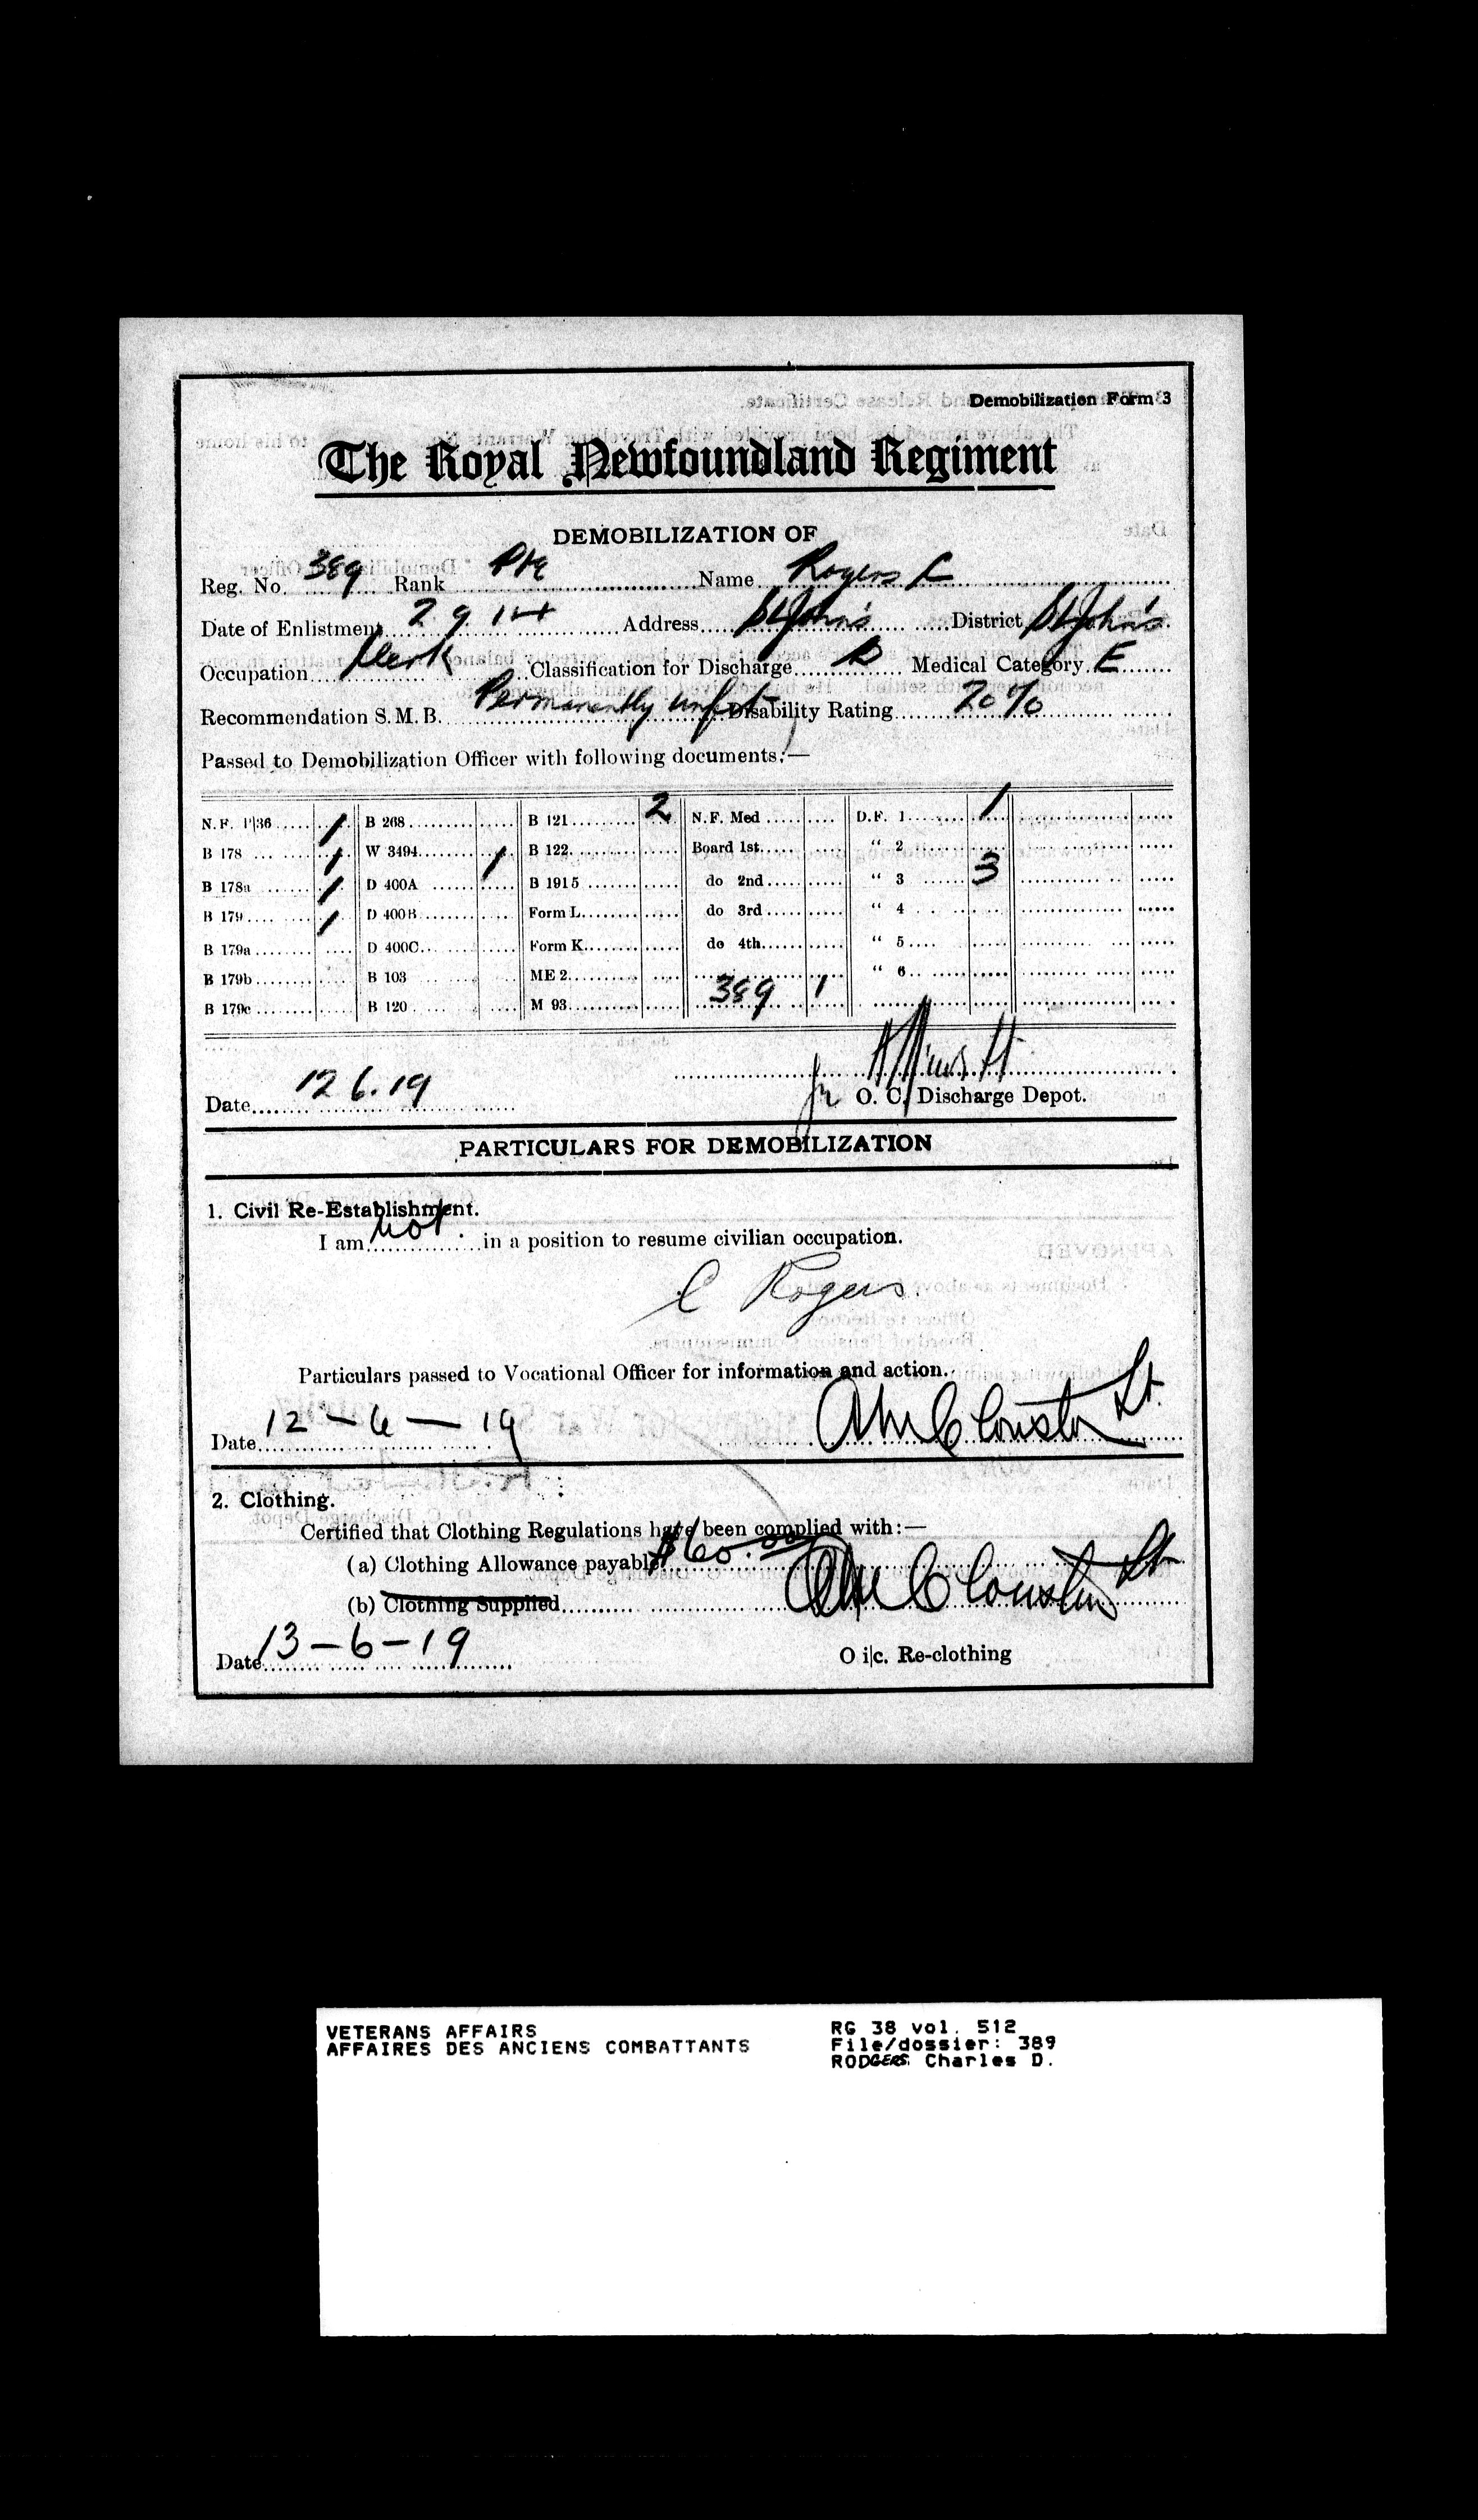 Demobilization Form 3
The Royal Newfoundland Regiment
DEMOBILIZATION OF
Reg. No. 389 Rank Pte Name Rogers C
Date of Enlistment 2 9 14 Address St John's District St John's
Occupation Clerk Classification for Discharge Medical Category E
Recommendation S. M. B. Permanently unfit Disability Rating 20%
Passed to Demobilization Officer with following documents:—
N.F. P|36 1 B 268 B 121 2 N.F. Med D.F. 1 1
B 178 1 W 3494 1 B 122 Board 1st " 2
B 178a 1 D 400A B 1915 do 2nd " 3 3
B 179 1 D 400B Form L do 3rd " 4
B 179a D 400C Form K do 4th " 5
B 179b B 103 ME 2 " 6
B 179c B 120 M 93 389 1
Date 12 6.19 O. C. Discharge Depot.
PARTICULARS FOR DEMOBILIZATION
1. Civil Re-Establishment.
I am not in a position to resume civilian occupation.
C Rogers
Particulars passed to Vocational Officer for information and action.
Date 12-6-19 Lt
2. Clothing.
Certified that Clothing Regulations have been complied with:—
(a) Clothing Allowance payable $60.00
(b) Clothing Supplied Lt
Date 13-6-19 O i|c. Re-clothing
VETERANS AFFAIRS RG 38 vol. 512
AFFAIRES DES ANCIENS COMBATTANTS File/dossier: 389
RODGERS Charles D.